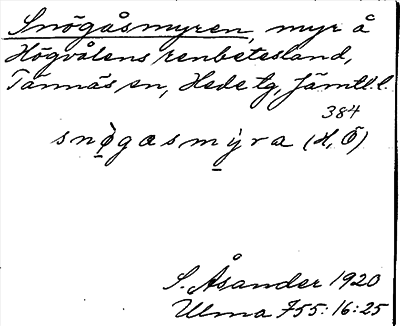 Snögåsmyren, myr å
Högvålens renbetesland,
Tännäs sn, Hede tg, Jämtl. l.
384
snø̀gæsmỳra (H, Ö)
S. Åsander 1920
Ulma 755:16:25